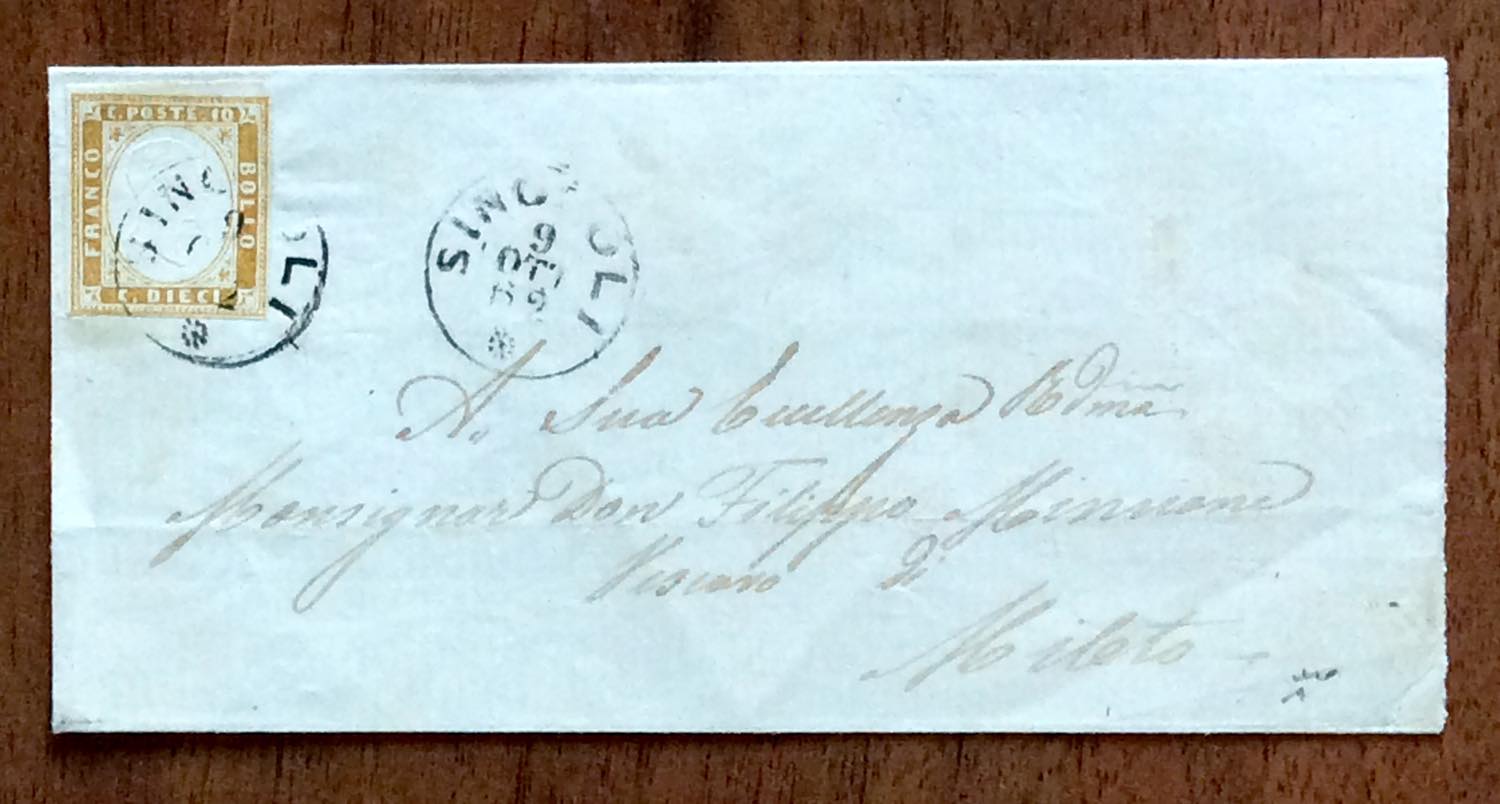 C. POSTE. 10
FRANCO
BOLLO
C. DIECI
SINO OLI
9
SINO OLI
9
OTT
A. Sua Eccellenza Rdma
Monsignor Don Filippo Mincione
Vescovo di
Mileto